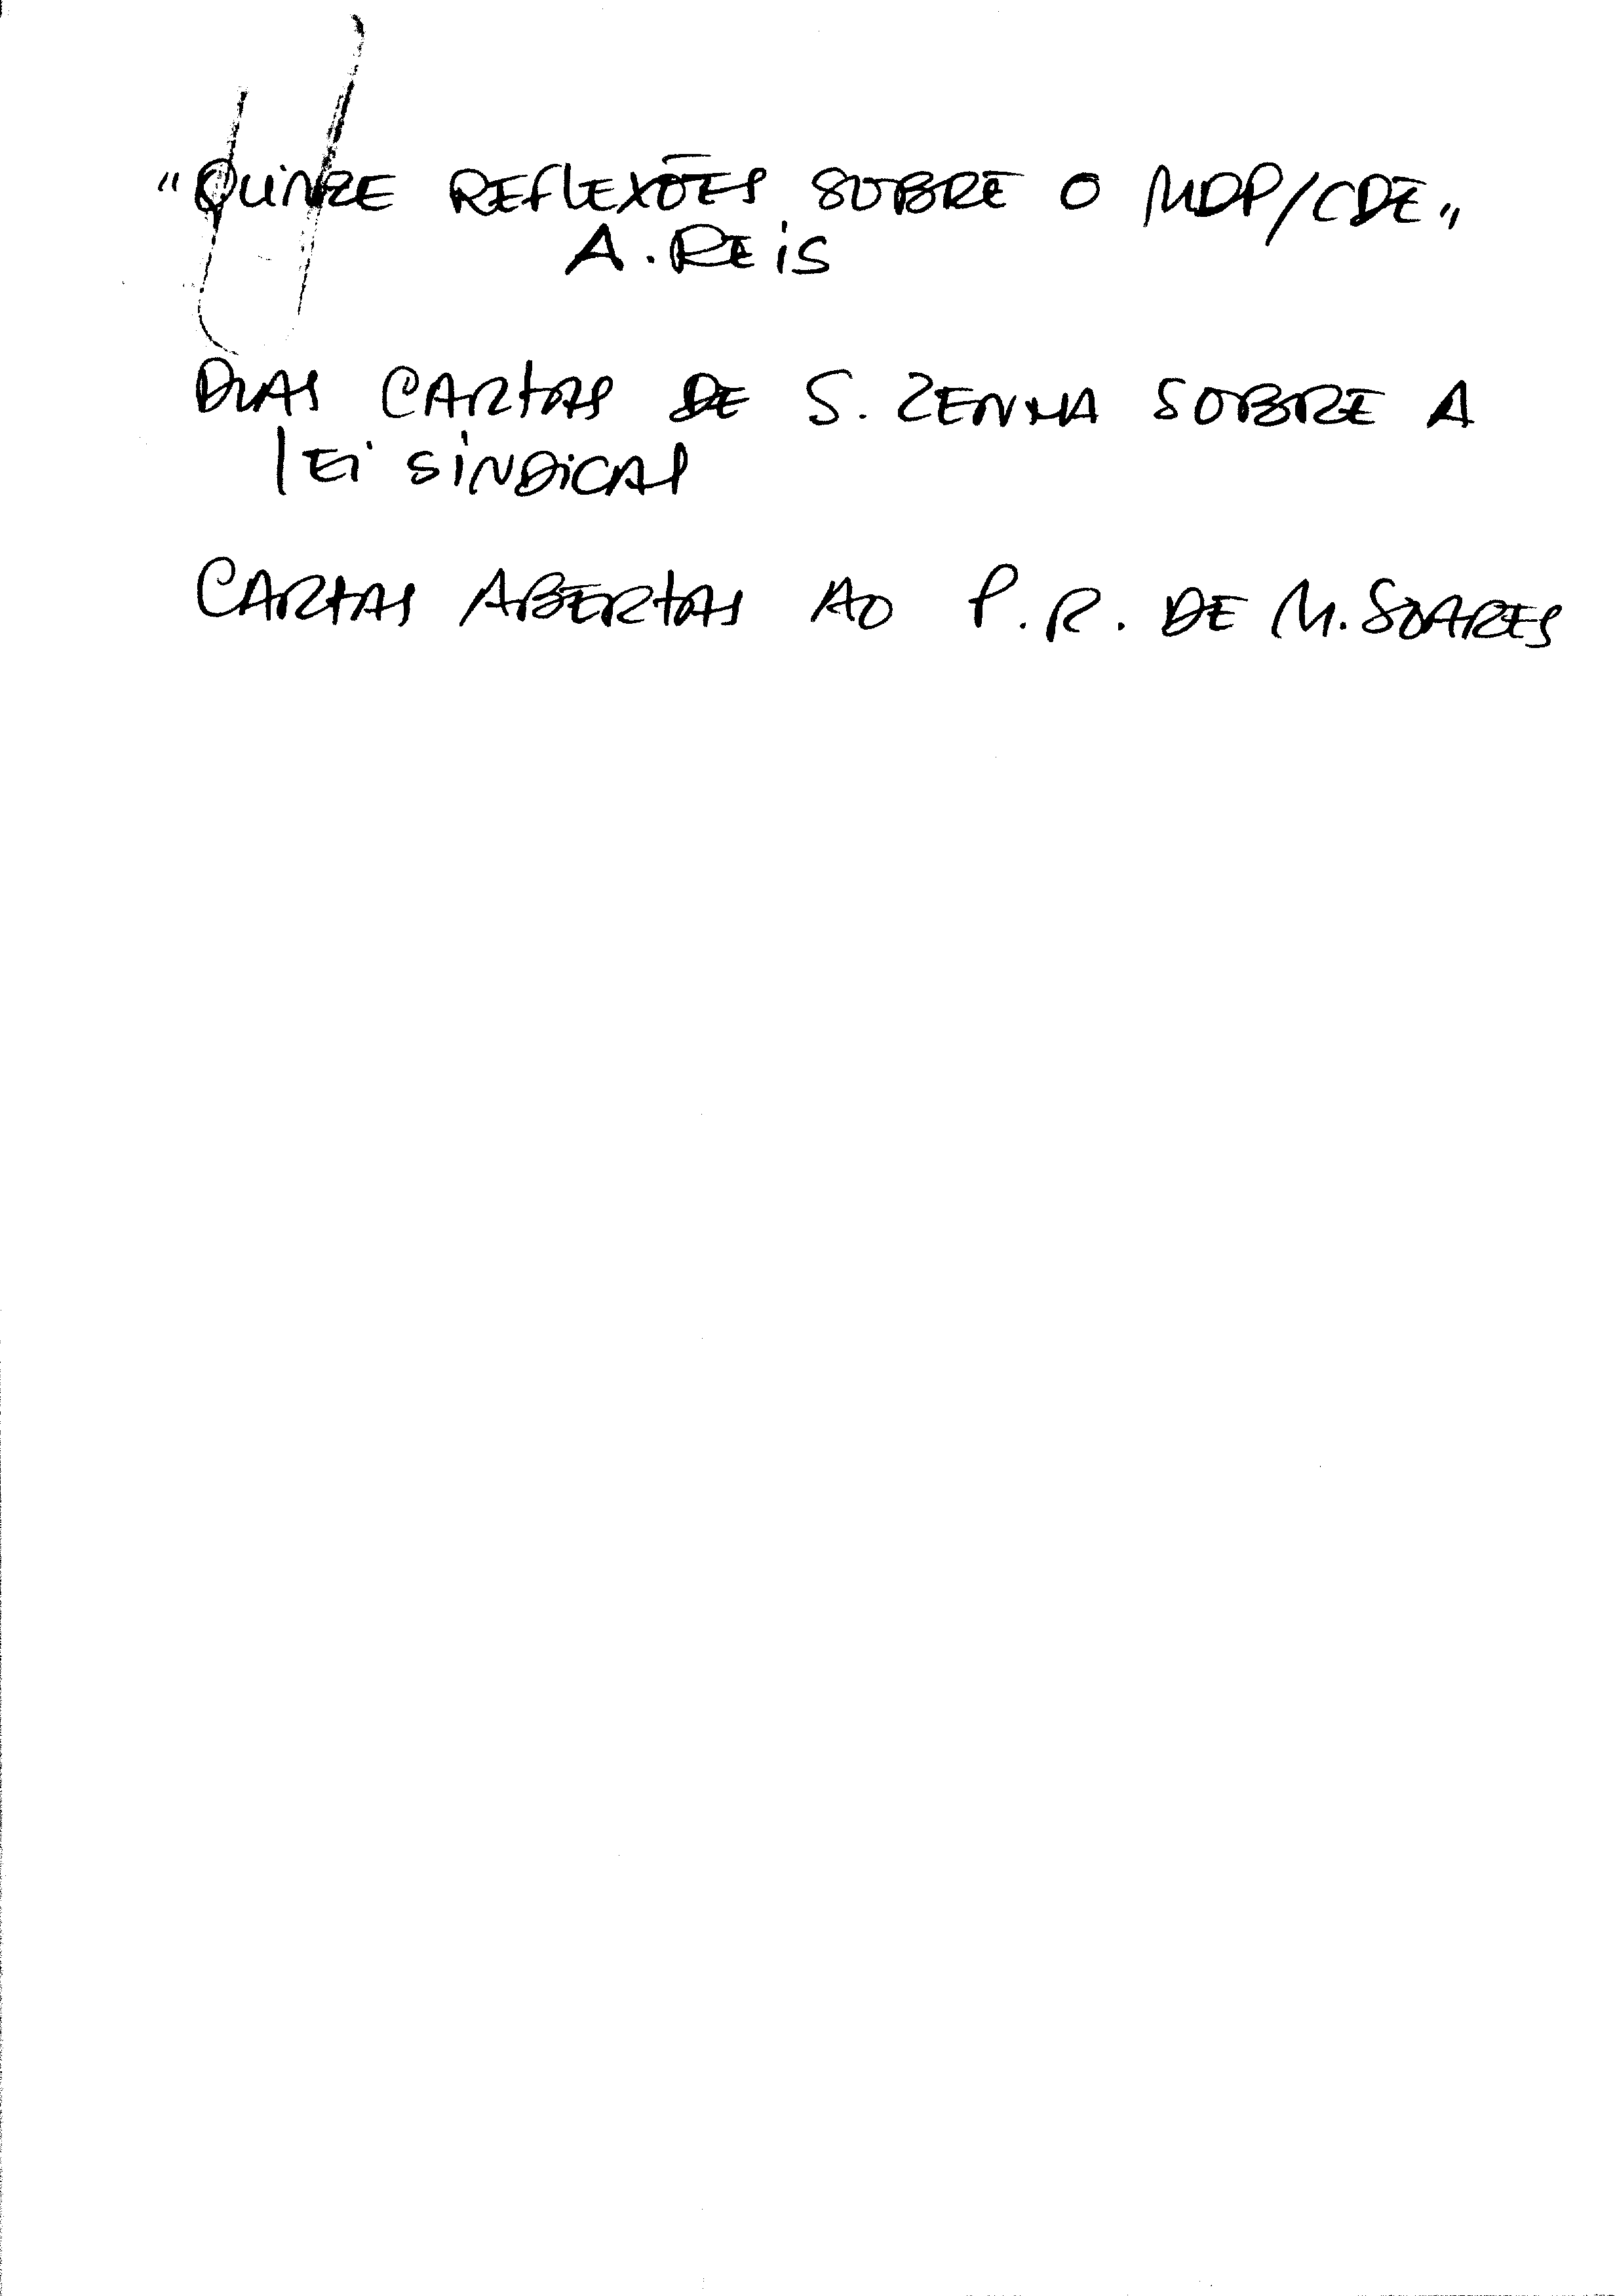 "QUINZE REFLEXÕES SOBRE O MDP/CDE"
A. REIS
DUAS CARTAS DE S. ZENHA SOBRE A
LEI SINDICAL
CARTAS ABERTAS AO P.R. DE M. SOARES